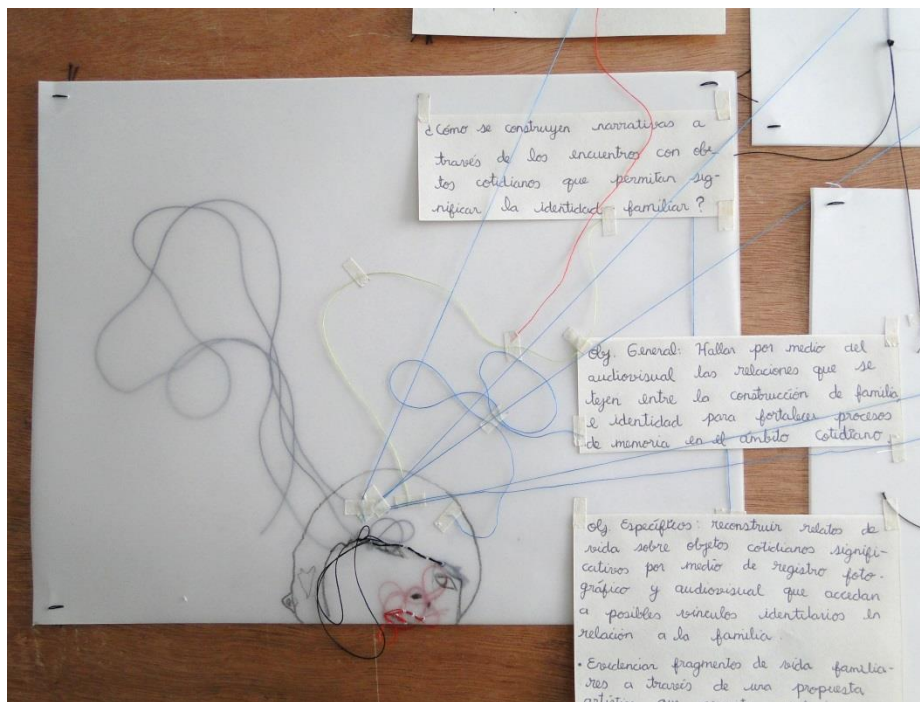 ¿Cómo se construyen narrativas a
través de los encuentros con obje-
tos cotidianos que permitan sig-
nificar la identidad familiar?
Obj. General: Hallar por medio del
audiovisual las relaciones que se
tejen entre la construcción de familia
e identidad para fortalecer procesos
de memoria en el ámbito cotidiano
Obj Específicos: reconstruir relatos de
vida sobre objetos cotidianos signifi-
cativos por medio de registro foto-
gráfico y audiovisual que accedan
a posibles vínculos identitarios en
relación a la familia.
• Evidenciar fragmentos de vida familia-
res a través de una propuesta